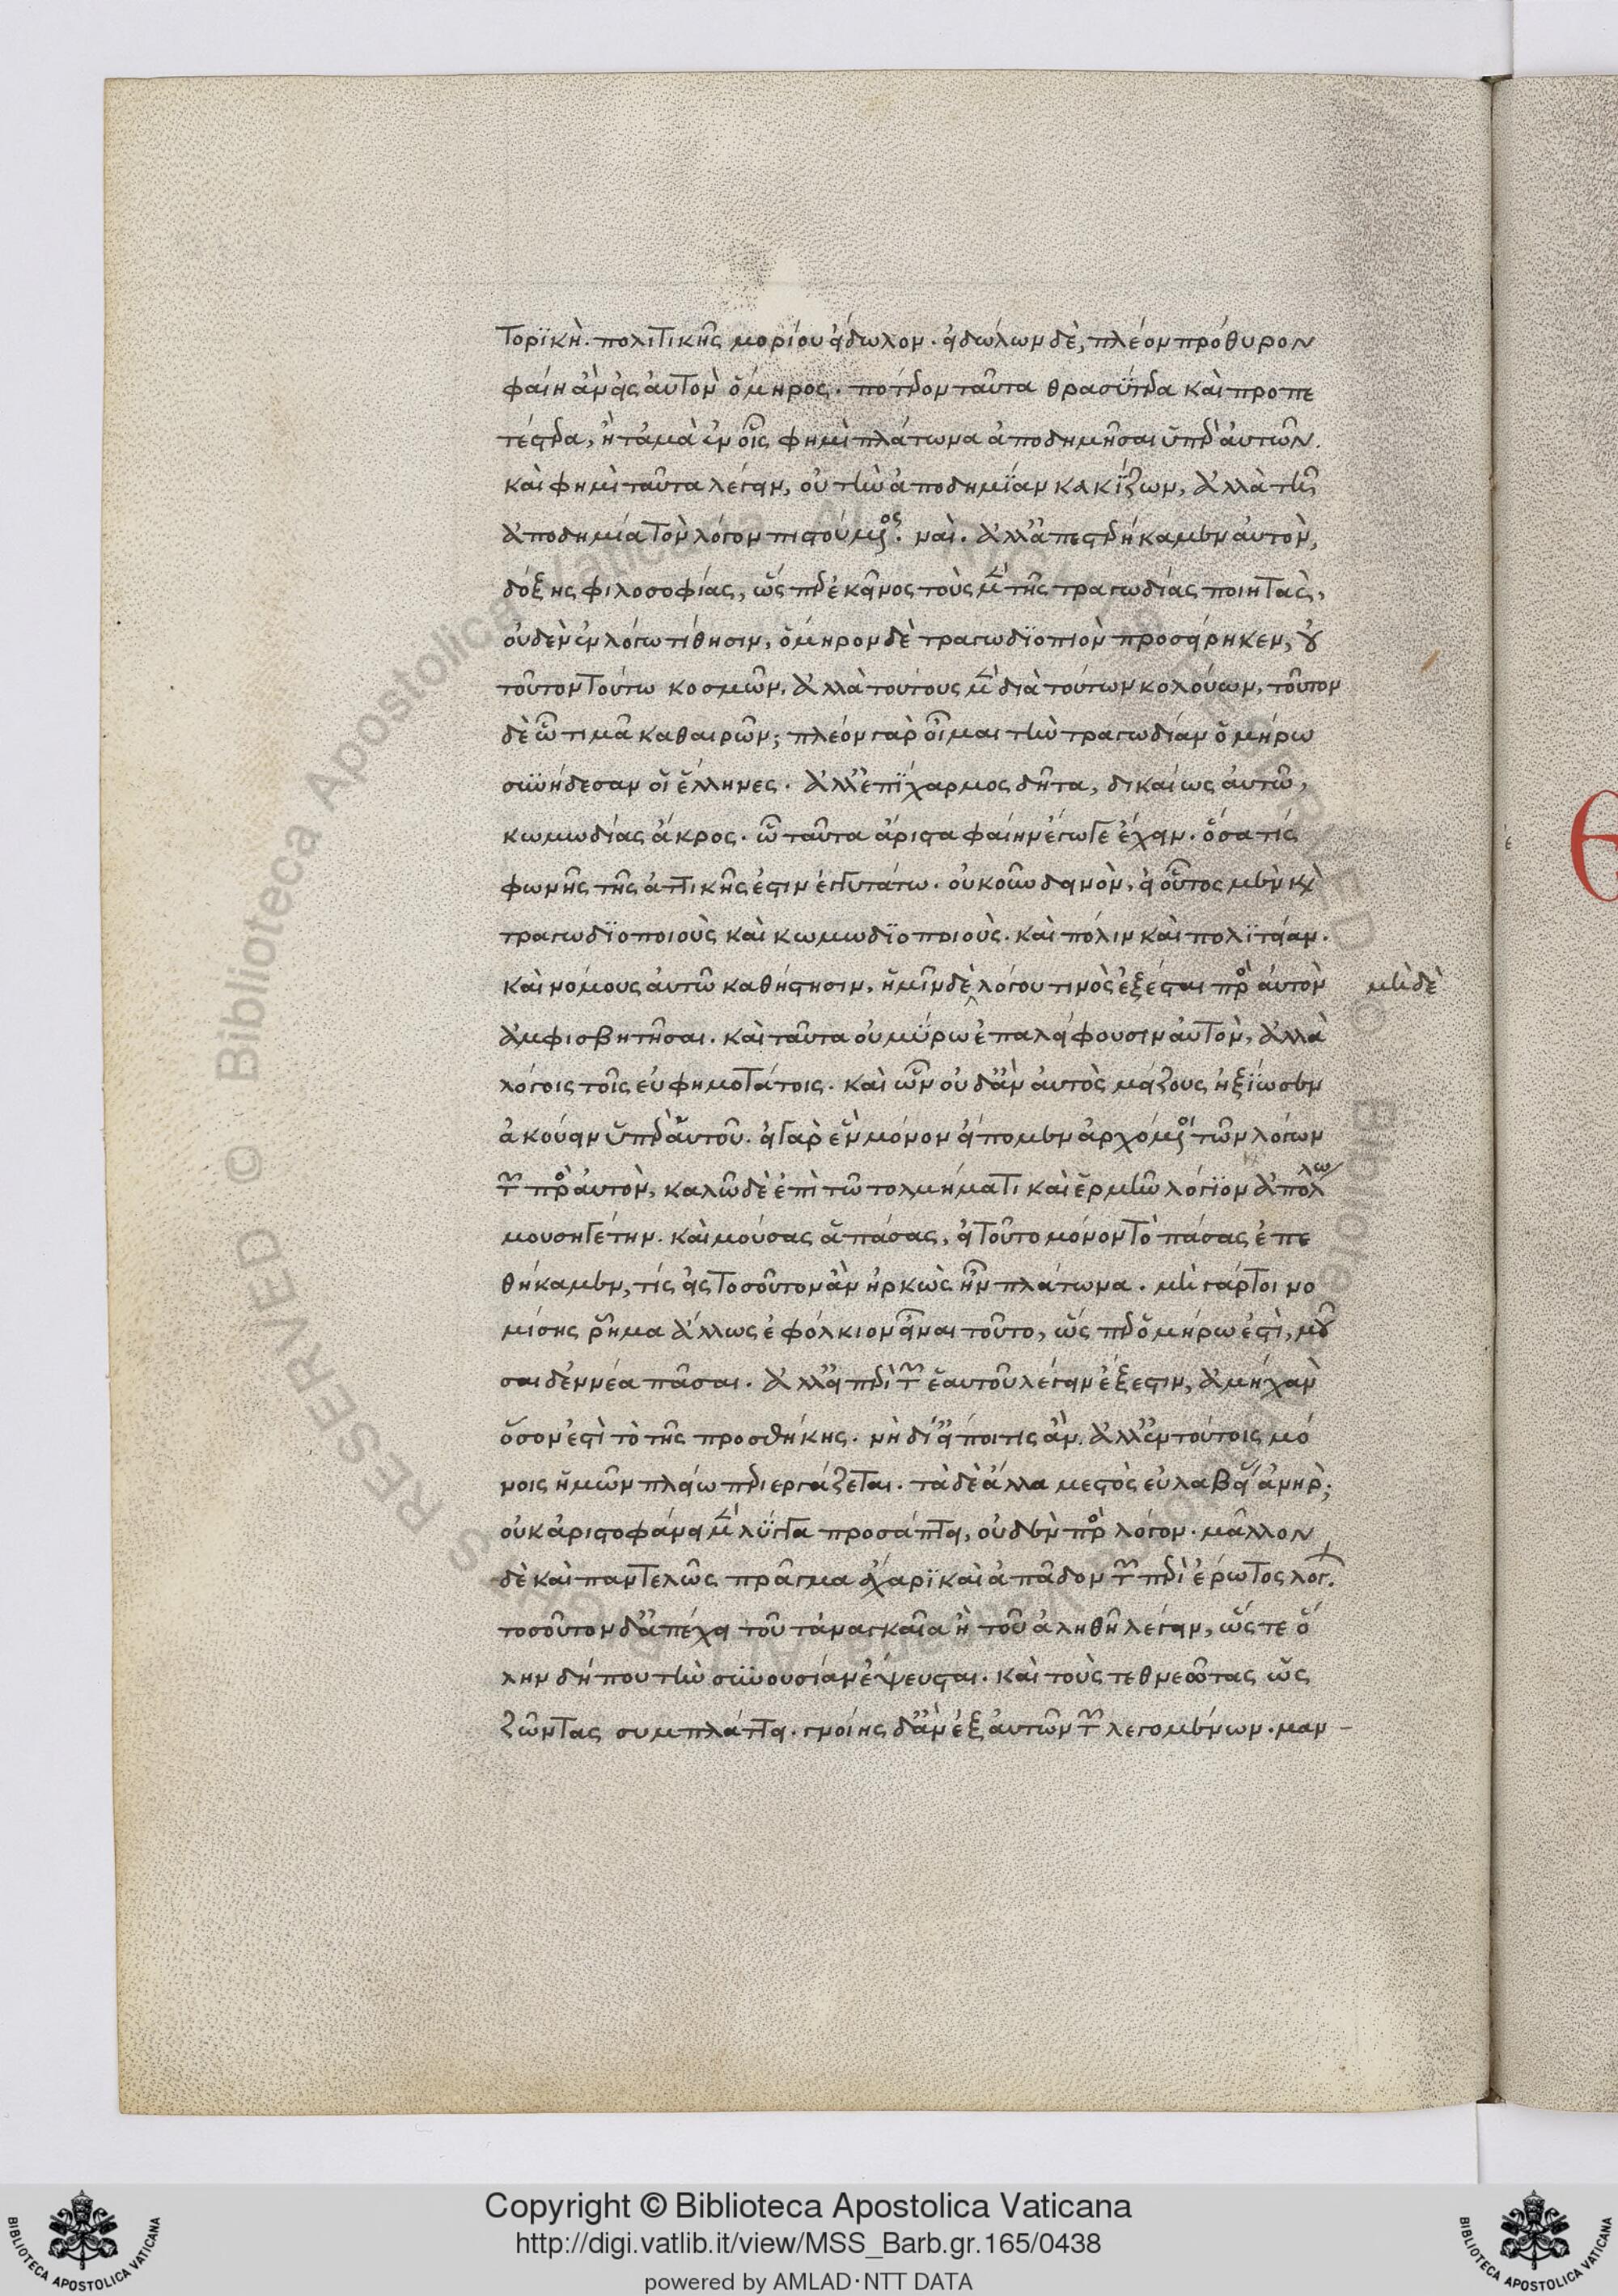 τορϊκὴ. πολιτικῆς μορίου εἴδωλον. εἰδώλων δὲ, πλέον πρόθυρον
φαίη ἂν εἰς αὐτὸν ὅμηρος. πότερον ταῦτα θρασύτερα καὶ προπε
τέστερα, ἢ τἀμὰ ἐν οἷς φημὶ πλάτωνα ἀποδημῆσαι ὑπὲρ αὐτῶν.
καὶ φημὶ ταῦτα λέγειν, οὐ τὴν ἀποδημίαν κακίζων, ἀλλὰ τῆ
ἀποδημία τὸν λόγον πιστούμενος. ναί. ἀλλ' ἀπεστερήκαμεν αὐτὸν,
δόξης φιλοσοφίας, ὥσπερ ἐκεῖνος τοὺς μὲν τῆς τραγωδίας ποιητὰς,
οὐδὲν ἐν λόγω τίθησιν, ὅμηρον δὲ τραγωδϊοποιὸν προσείρηκεν, οὐ
τοῦτον τούτω κοσμῶν, ἀλλὰ τούτους μὲν διὰ τούτων κολούων, τοῦτον
δὲ ὧ τιμᾶ καθαιρῶν; πλέον γὰρ οἶμαι τὴν τραγωδίαν ὁμήρω
συνήδεσαν οἱ ἕλληνες. ἀλλ' ἐπίχαρμος δῆτα, δικαίως αὐτῶ,
κωμωδίας ἄκρος. ὧ ταῦτα ἄριστα φαίην ἔγωγε ἔχειν. ὅσα τῆς
φωνῆς τῆς ἀττικῆς ἐστιν ἐγγυτάτω. οὐκοῦν δεινὸν, εἰ οὗτος μὲν καὶ
τραγωδϊοποιοὺς καὶ κωμωδϊοποιοὺς. καὶ πόλιν καὶ πολιτείαν.
καὶ νόμους αὐτῶ καθίστησιν, ἡμῖν δὲ λόγου τινὸς ἐξέσται πρὸς αὐτὸν μηδὲ
ἀμφισβητῆσαι. καὶ ταῦτα οὐ μύρω ἐπαλείφουσιν αὐτὸν, ἀλλὰ
λόγοις τοῖς εὐφημοτάτοις. καὶ ὧν οὐδ' ἂν αὐτὸς μείζους ἠξίωσεν
ἀκούειν ὑπὲρ αὑτοῦ. εἰ γὰρ ἓν μόνον εἴπομεν ἀρχόμενοι τῶν λόγων
τῶν πρὸς αὐτὸν, καλῶ δὲ ἐπὶ τῶ τολμήματι καὶ ἑρμῆν λόγϊον ἀπόλλω
μουσηγέτην. καὶ μούσας ἁπάσας, εἰ τοῦτο μόνον τὸ πάσας ἐπε
θήκαμεν, τίς εἰς τοσοῦτον ἂν ἠρκὼς ἦν πλάτωνα. μὴ γάρ τοι νο
μίσης ῥῆμα ἄλλως ἐφόλκιον εἶναι τοῦτο, ὥσπερ ὁμήρω ἐστὶ, μοῦ
σαι δ' ἐννέα πᾶσαι. ἀλλ' εἰ περὶ τῶν ἑαυτοῦ λέγειν ἔξεστιν, ἀμήχαν
ὅσον ἐστὶ τὸ τῆς προσθήκης. νὴ δί' εἴποι τις ἄν. ἀλλ' ἐν τούτοις μό
νοις ἡμῶν πλείω περιεργάζεται. τὰ δὲ ἄλλα μεστὸς εὐλαβείας ἀνὴρ;
οὐκ ἀριστοφάνει μὲν λύγγα προσάπτει, οὐδὲν πρὸς λόγον. μᾶλλον
δὲ καὶ παντελῶς πρᾶγμα ἄχαρϊ καὶ ἀπᾶδον τῶν περὶ ἔρωτος λόγων.
τοσοῦτον δ' ἀπέχει τοῦ τἀναγκαῖα ἢ τοῦ ἀληθῆ λέγειν, ὥστε ὅ
λην δήπου τὴν συνουσίαν ἔψευσται. καὶ τοὺς τεθνεῶτας ὡς
ζῶντας συμπλάττει. γνοίης δ' ἂν ἐξ αὐτῶν τῶν λεγομένων. μαν-
Copyright © Biblioteca Apostolica Vaticana
http://digi.vatlib.it/view/MSS_Barb.gr.165/0438
powered by AMLAD·NTT DATA